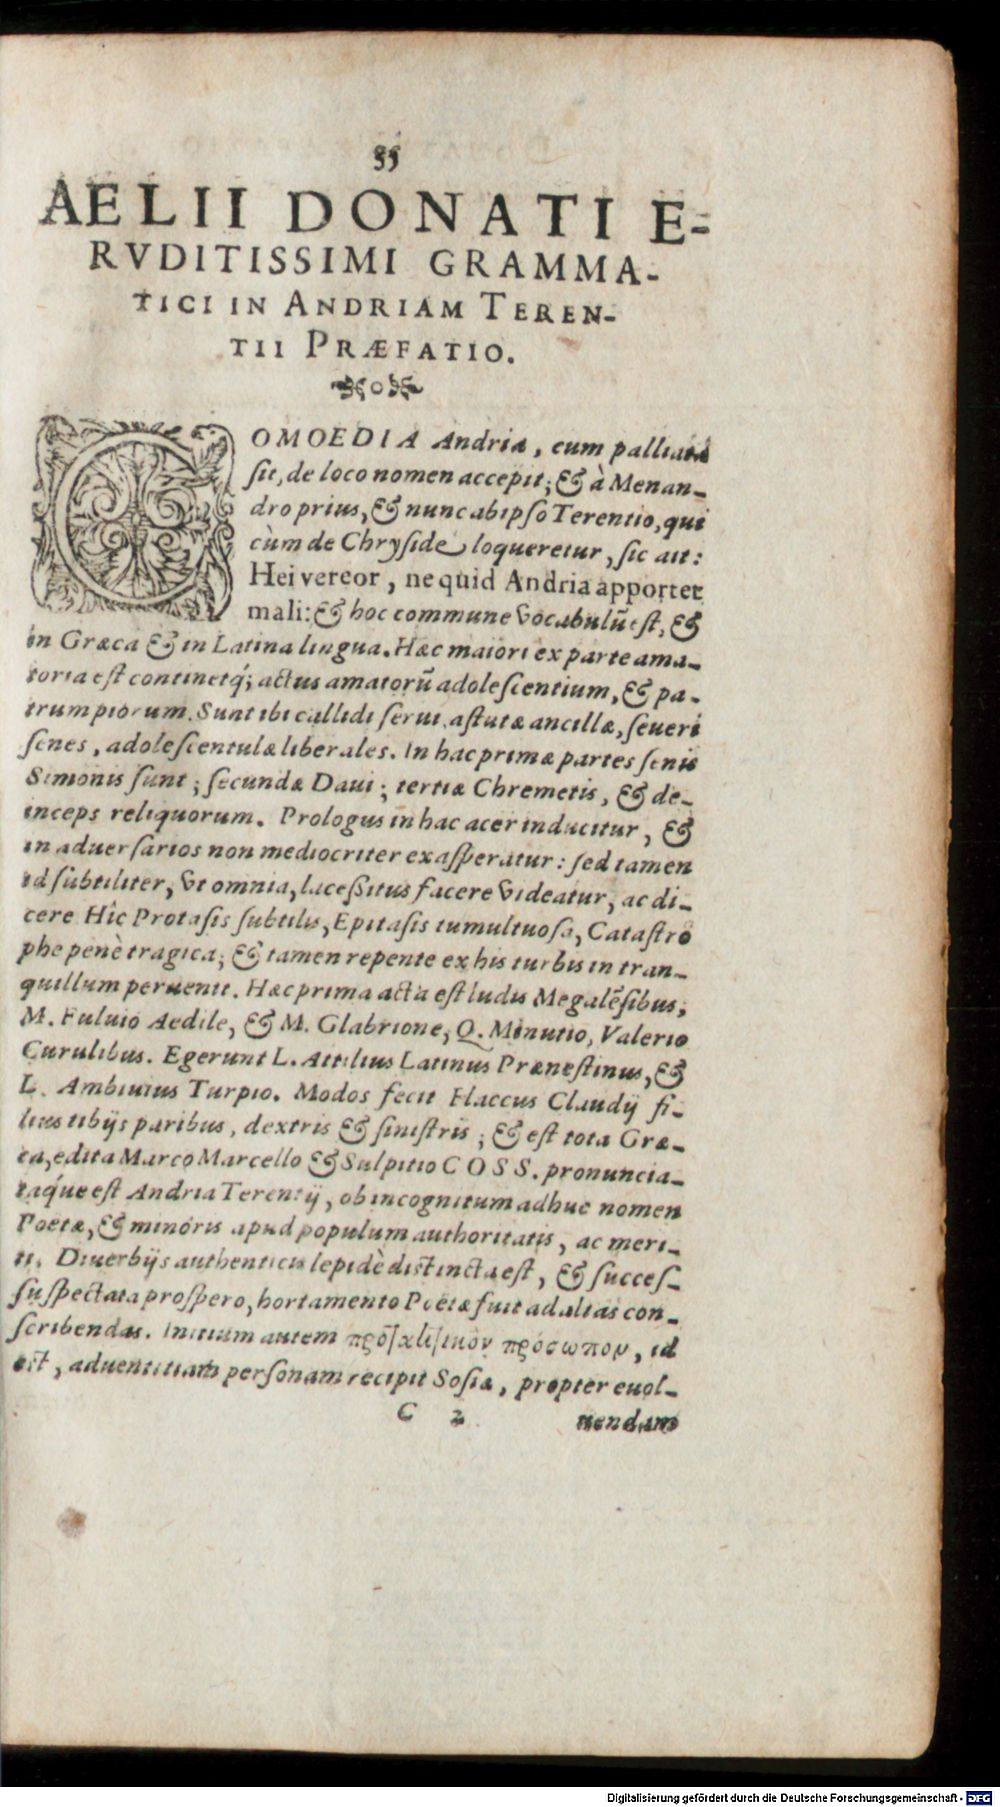 35
AELII DONATI E-
RVDITISSIMI GRAMMA-
TICI IN ANDRIAM TEREN-
TII PRÆFATIO.
COMOEDIA Andria, cum palliata
ſit, de loco nomen accepit; & à Menan-
dro prius, & nunc ab ipſo Terentio, qui
cùm de Chryſide loqueretur, ſic ait:
Hei vereor, ne quid Andria apportet
mali: & hoc commune vocabulũ eſt, &
in Græca & in Latina lingua. Hæc maiori ex parte ama-
toria eſt continetq́; actus amatorũ adoleſcentium, & pa-
trum piorum. Sunt ibi callidi ſerui, aſtutæ ancillæ, ſeueri
ſenes, adoleſcentulæ liberales. In hac primæ partes ſenis
Simonis ſunt; ſecundæ Daui; tertiæ Chremetis, & de-
inceps reliquorum. Prologus in hac acer inducitur, &
in aduerſarios non mediocriter exaſperatur: ſed tamen
id ſubtiliter, vt omnia, laceßitus facere videatur, ac di-
cere Hîc Protaſis ſubtilis, Epitaſis tumultuoſa, Cataſtro
phe penè tragica; & tamen repente ex his turbis in tran-
quillum peruenit. Hæc prima acta eſt ludis Megalẽſibus;
M. Fuluio Aedile, & M. Glabrione, Q. Minutio, Valerio
Curulibus. Egerunt L. Attilius Latinus Præneſtinus, &
L. Ambiuius Turpio. Modos fecit Flaccus Claudij fi-
lius tibijs paribus, dextris & ſiniſtris; & eſt tota Græ-
ca, edita Marco Marcello & Sulpitio COSS. pronuncia-
taq́ue eſt Andria Terentij, ob incognitum adhuc nomen
Poetæ, & minoris apud populum authoritatis, ac meri-
ti. Diuerbijs authenticis lepidè diſtincta eſt, & ſucceſ-
ſu ſpectata proſpero, hortamento Poetæ fuit ad alias con-
ſcribendas. Initium autem πρόσωπον, id
eſt, aduentitiam perſonam recipit Soſia, propter euol-
C 2 uendam
Digitalisierung gefördert durch die Deutsche Forschungsgemeinschaft - DFG